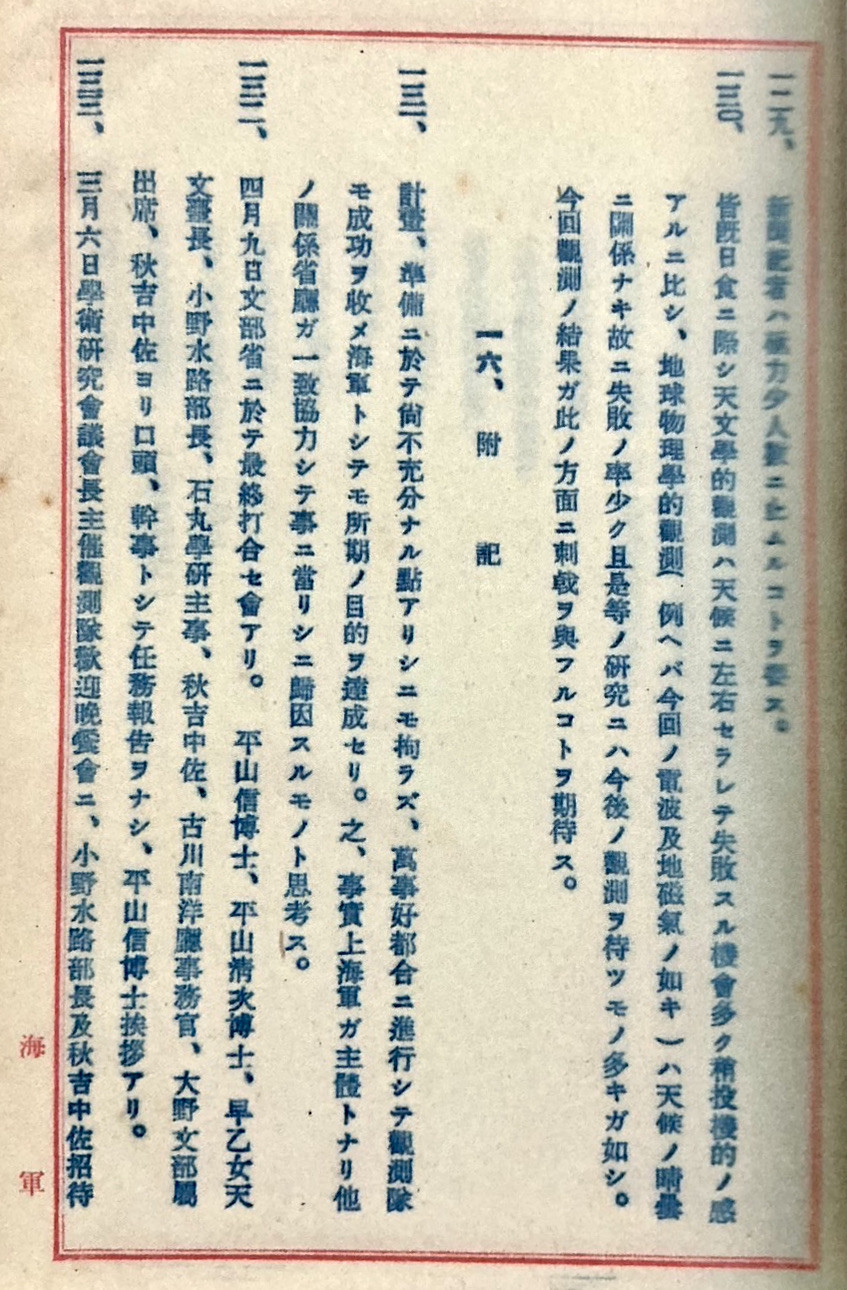 一二九、 新聞記者ハ極力少人數ニ止ムルコトヲ要ス。
一三〇、 皆既日食ニ際シ天文學的觀測ハ天候ニ左右セラレテ失敗スル機會多ク稍投機的ノ感
アルニ比シ、地球物理學的觀測（例ヘバ今回ノ電波及地磁氣ノ如キ）ハ天候ノ晴曇
ニ關係ナキ故ニ失敗ノ率少ク且是等ノ研究ニハ今後ノ觀測ヲ待ツモノ多キガ如シ。
今回觀測ノ結果ガ此ノ方面ニ刺戟ヲ與フルコトヲ期待ス。
一六、附記
一三一、 計畫、準備ニ於テ尙不充分ナル點アリシニモ拘ラズ、萬事好都合ニ進行シテ觀測隊
モ成功ヲ收メ海軍トシテモ所期ノ目的ヲ達成セリ。之、事實上海軍ガ主體トナリ他
ノ關係省廳ガ一致協力シテ事ニ當リシニ歸因スルモノト思考ス。
一三二、 四月九日文部省ニ於テ最終打合セ會アリ。 平山信博士、平山淸次博士、早乙女天
文臺長、小野水路部長、石丸學研主事、秋吉中佐、古川南洋廳事務官、大野文部屬
出席、秋吉中佐ヨリ口頭、幹事トシテ任務報告ヲナシ、平山信博士挨拶アリ。
一三三、 三月六日學術研究會議會長主催觀測隊歡迎晩餐會ニ、小野水路部長及秋吉中佐招待
海軍